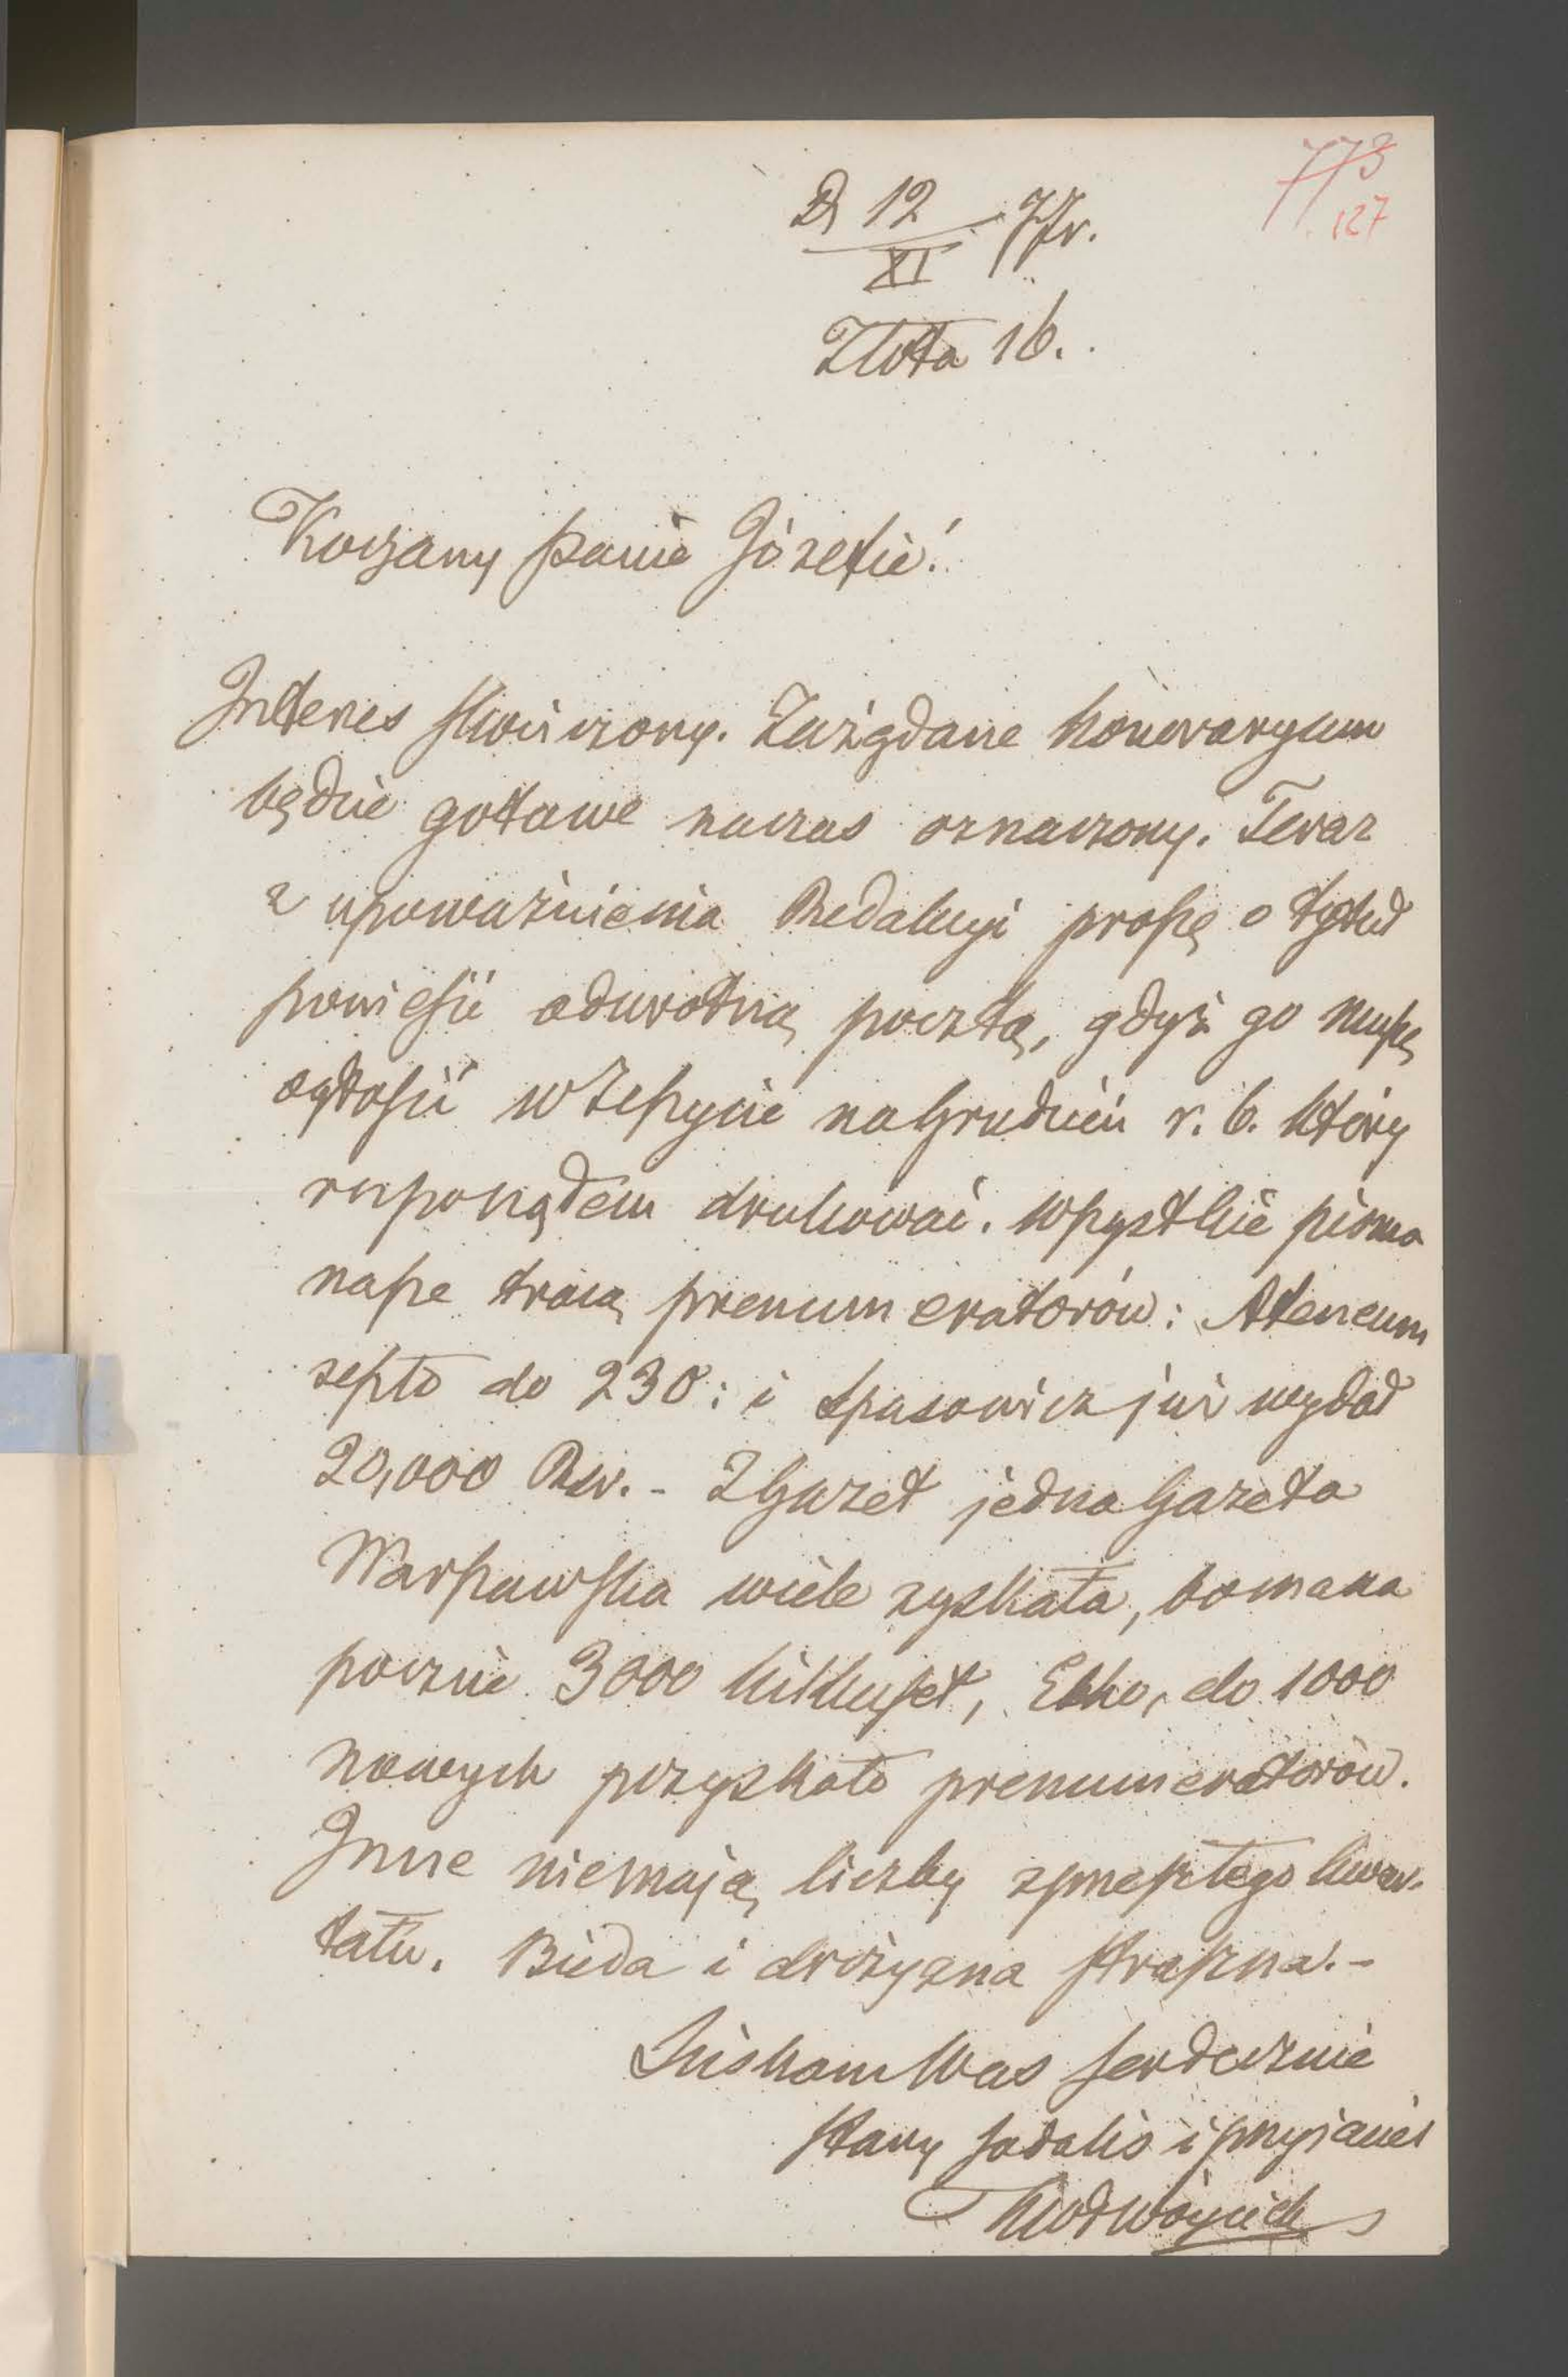 773
127
D. 12/XI 77 r.
Złota 16.
Kochany Panie Józefie!
Interes skończony. Zażądane honorarium
będzie gotowe naczas oznaczony. Teraz
z upoważnienia Redakcyi proszę o tytuł
powieści odwrotną pocztą, gdyż go muszę
ogłosić w Zeszycie na Grudzień r. b. który
rozpocząłem drukować. Wszystkie pisma
nasze tracą prenumeratorów: Ateneum
zeszło do 230: i Spasowicz już wydał
20,000 Rsr. - Z Gazet jedna Gazeta
Warszawska wiele zyskała, bo ma na
poczcie 3000 kilkuset, Echo, do 1000
nowych pozyskało prenumeratorów.
Inne niemają liczby zeszłego kwar-
tału. Bieda i drożyzna straszna! -
Ściskam Was serdecznie
stary sodalis i przyjaciel
KWł Wójcick